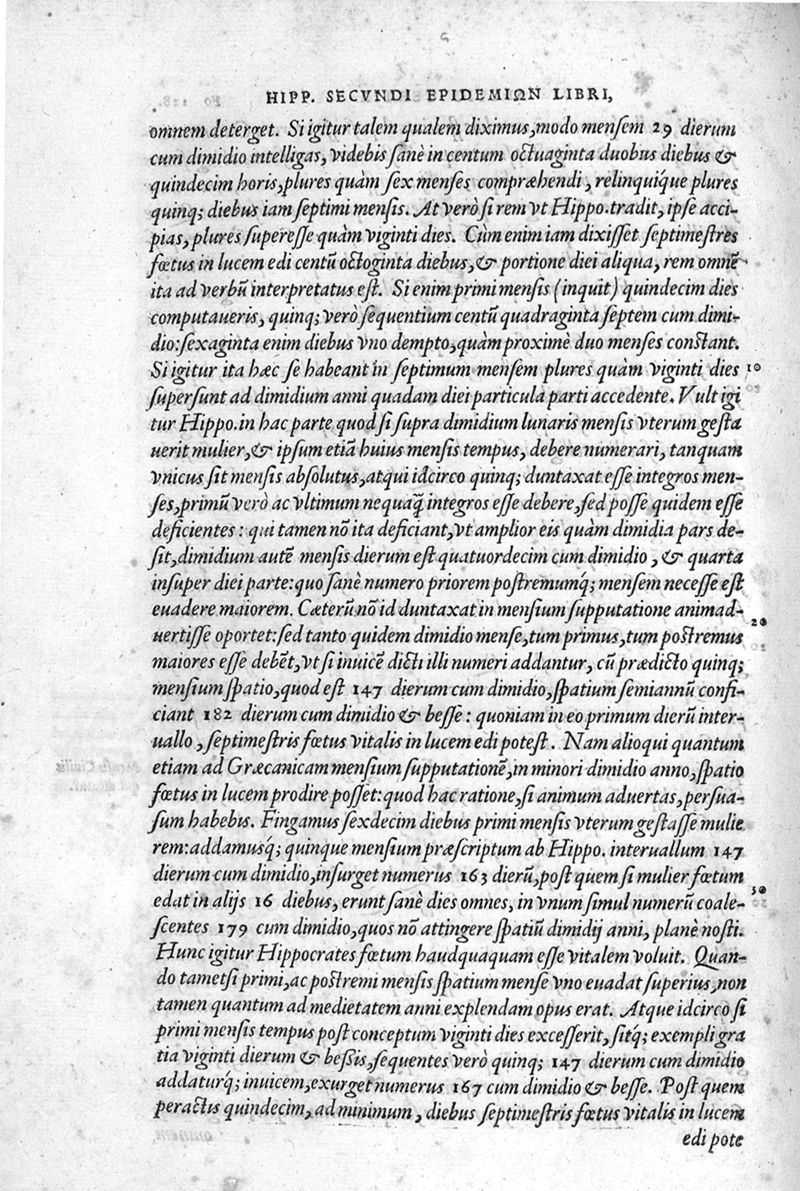 HIPP. SECVNDI EPIDEMIΩN LIBRI,
omnem deterget. Si igitur talem qualem diximus, modo menſem 29 dierum
cum dimidio intelligas, videbis ſanè in centum octuaginta duobus diebus &
quindecim horis, plures quàm ſex menſes compræhendi, relinquíque plures
quinq; diebus iam ſeptimi menſis. At verò ſi rem vt Hippo. tradit, ipſe acci-
pias, plures ſupereſſe quàm viginti dies. Cùm enim iam dixiſſet ſeptimeſtres
fœtus in lucem edi centũ octoginta diebus, & portione diei aliqua, rem omnẽ
ita ad verbũ interpretatus eſt. Si enim primi menſis (inquit) quindecim dies
computaueris, quinq; verò ſequentium centũ quadraginta ſeptem cum dimi-
dio: ſexaginta enim diebus vno dempto, quàm proximè duo menſes conſtant.
Si igitur ita hæc ſe habeant in ſeptimum menſem plures quàm viginti dies 10
ſuperſunt ad dimidium anni quadam diei particula parti accedente. Vult igi
tur Hippo. in hac parte quod ſi ſupra dimidium lunaris menſis vterum geſta
uerit mulier, & ipſum etiã huius menſis tempus, debere numerari, tanquam
vnicus ſit menſis abſolutus, atqui idcirco quinq; duntaxat eſſe integros men-
ſes, primũ verò ac vltimum nequaq̃ integros eſſe debere, ſed poſſe quidem eſſe
deficientes: qui tamen nõ ita deficiant, vt amplior eis quàm dimidia pars de-
ſit, dimidium autẽ menſis dierum eſt quatuordecim cum dimidio, & quarta
inſuper diei parte: quo ſanè numero priorem poſtremumq́; menſem neceſſe eſt
euadere maiorem. Cæterũ nõ id duntaxat in menſium ſupputatione animad-
uertiſſe oportet: ſed tanto quidem dimidio menſe, tum primus, tum poſtremus 20
maiores eſſe debẽt, vt ſi inuicẽ dicti illi numeri addantur, cũ prædicto quinq;
menſium ſpatio, quod eſt 147 dierum cum dimidio, ſpatium ſemiannũ confi-
ciant 182 dierum cum dimidio & beſſe: quoniam in eo primum dierũ inter-
uallo, ſeptimeſtris fœtus vitalis in lucem edi poteſt. Nam alioqui quantum
etiam ad Græcanicam menſium ſupputationẽ, in minori dimidio anno, ſpatio
fœtus in lucem prodire poſſet: quod hac ratione, ſi animum aduertas, perſua-
ſum habebis. Fingamus ſexdecim diebus primi menſis vterum geſtaſſe mulie
rem: addamusq́; quinque menſium præſcriptum ab Hippo. interuallum 147
dierum cum dimidio, inſurget numerus 163 dierũ, poſt quem ſi mulier fœtum
edat in alijs 16 diebus, erunt ſanè dies omnes, in vnum ſimul numerũ coale- 30
ſcentes 179 cum dimidio, quos nõ attingere ſpatiũ dimidij anni, planè noſti.
Hunc igitur Hippocrates fœtum haudquaquam eſſe vitalem voluit. Quan-
do tametſi primi, ac poſtremi menſis ſpatium menſe vno euadat ſuperius, non
tamen quantum ad medietatem anni explendam opus erat. Atque idcirco ſi
primi menſis tempus poſt conceptum viginti dies exceſſerit, ſitq́; exempli gra
tia viginti dierum & beßis, ſequentes verò quinq; 147 dierum cum dimidio
addaturq́; inuicem, exurget numerus 167 cum dimidio & beſſe. Poſt quem
peractis quindecim, ad minimum, diebus ſeptimeſtris fœtus vitalis in lucem
edi pote